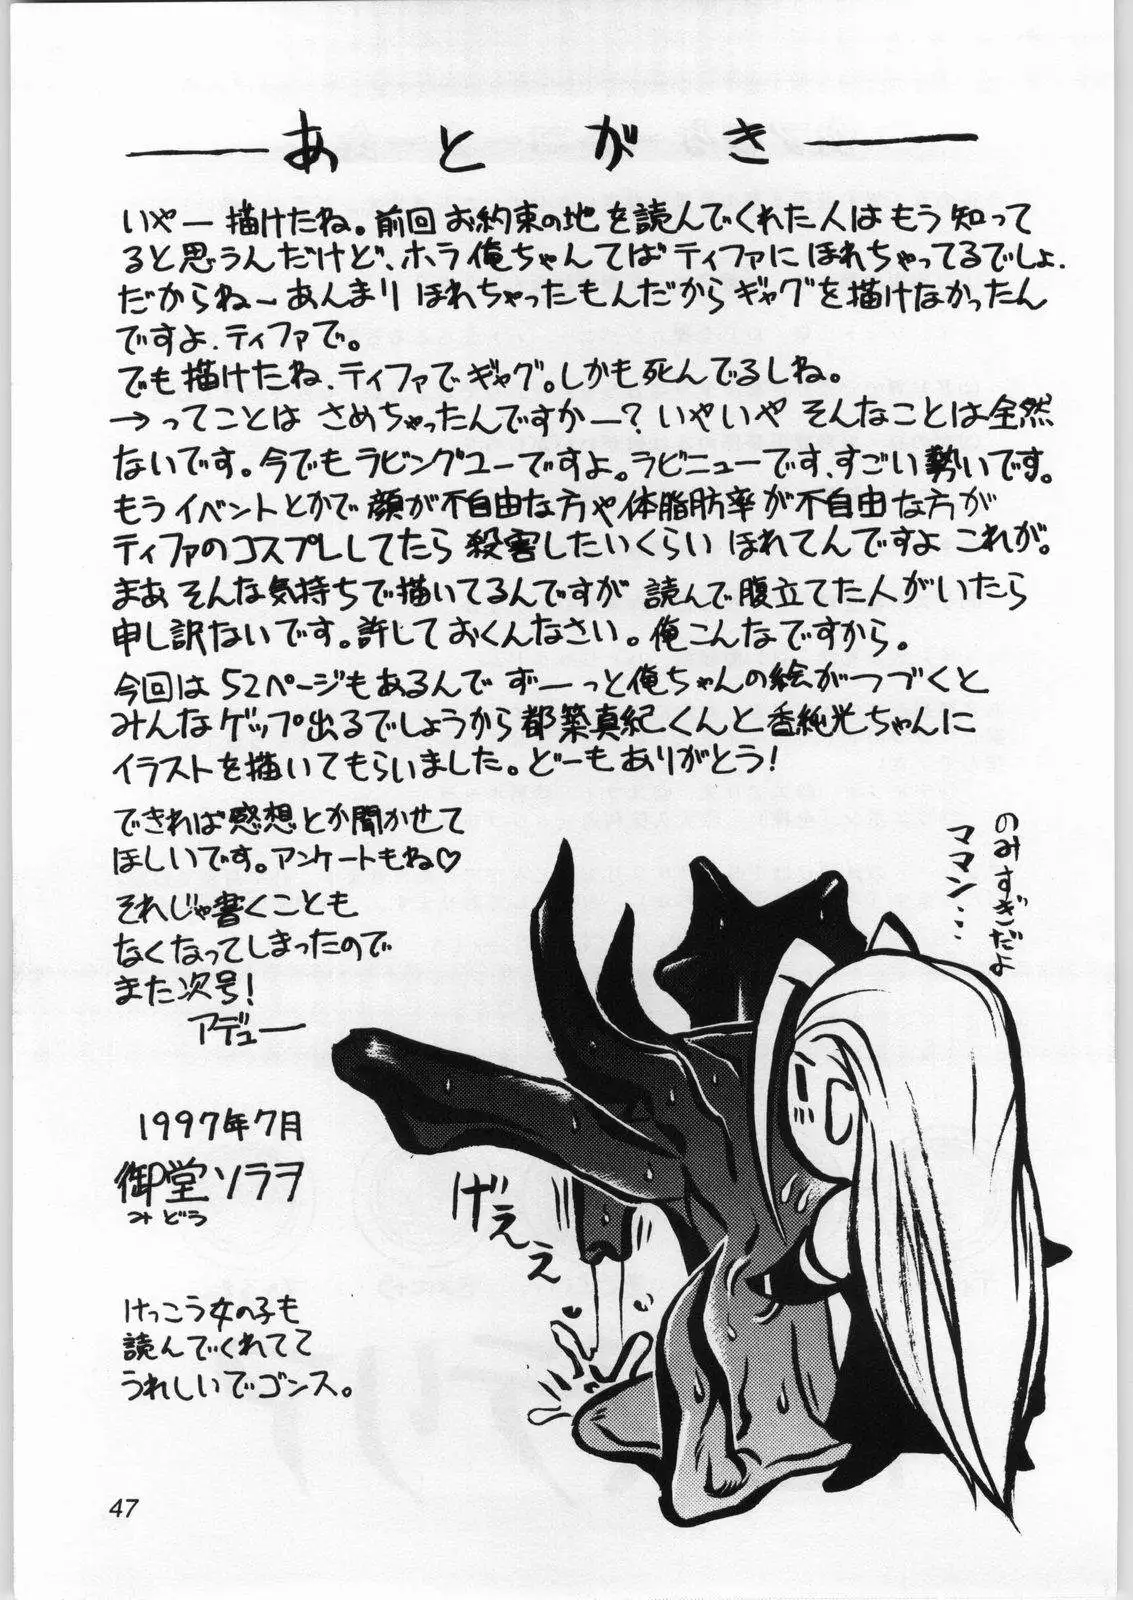 あとがき
いやー描けたね。前回お約束の地を読んでくれた人はもう知って
ると思うんだけど、ホラ俺ちゃんてばティファにほれちゃってるでしょ.
だからねーあんまりほれちゃったもんだからギャグを描けなかったん
ですよ.ティファで。
でも描けたね、ティファでギャグ。しかも死んでるしね。
→ってことはさめちゃったんですかー?いやいやそんなことは全然
ないです。今でもラビングユーですよ。ラビニューです、すごい勢いです。
もうイベントとかで顔が不自由な方や体脂肪率が不自由な方が
ティファのコスプレしてたら殺害したいくらいほれてんですよこれが。
まあそんな気持ちで描いてるんですが読んで腹立てた人がいたら
申し訳ないです。許しておくんなさい。俺こんなですから。
今回は52ページもあるんでずーっと俺ちゃんの絵がつづくと
みんなゲップ出るでしょうから都築真紀くんと香純光ちゃんに
イラストを描いてもらいました。どーもありがとう!
できれば感想とか聞かせて
ほしいです。アンケートもね♡
それじゃ書くことも
なくなってしまったので
また次号!
アデュー
のみすぎだよ
ママン…
げええぇ
1997年7月
御堂ソラヲ
みどう
けっこう女の子も
読んでくれてて
うれしいでゴンス。
47